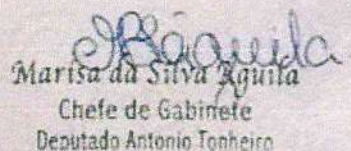 Marisa da Silva Águila
Chefe de Gabinete
Deputado Antonio Tonheiro